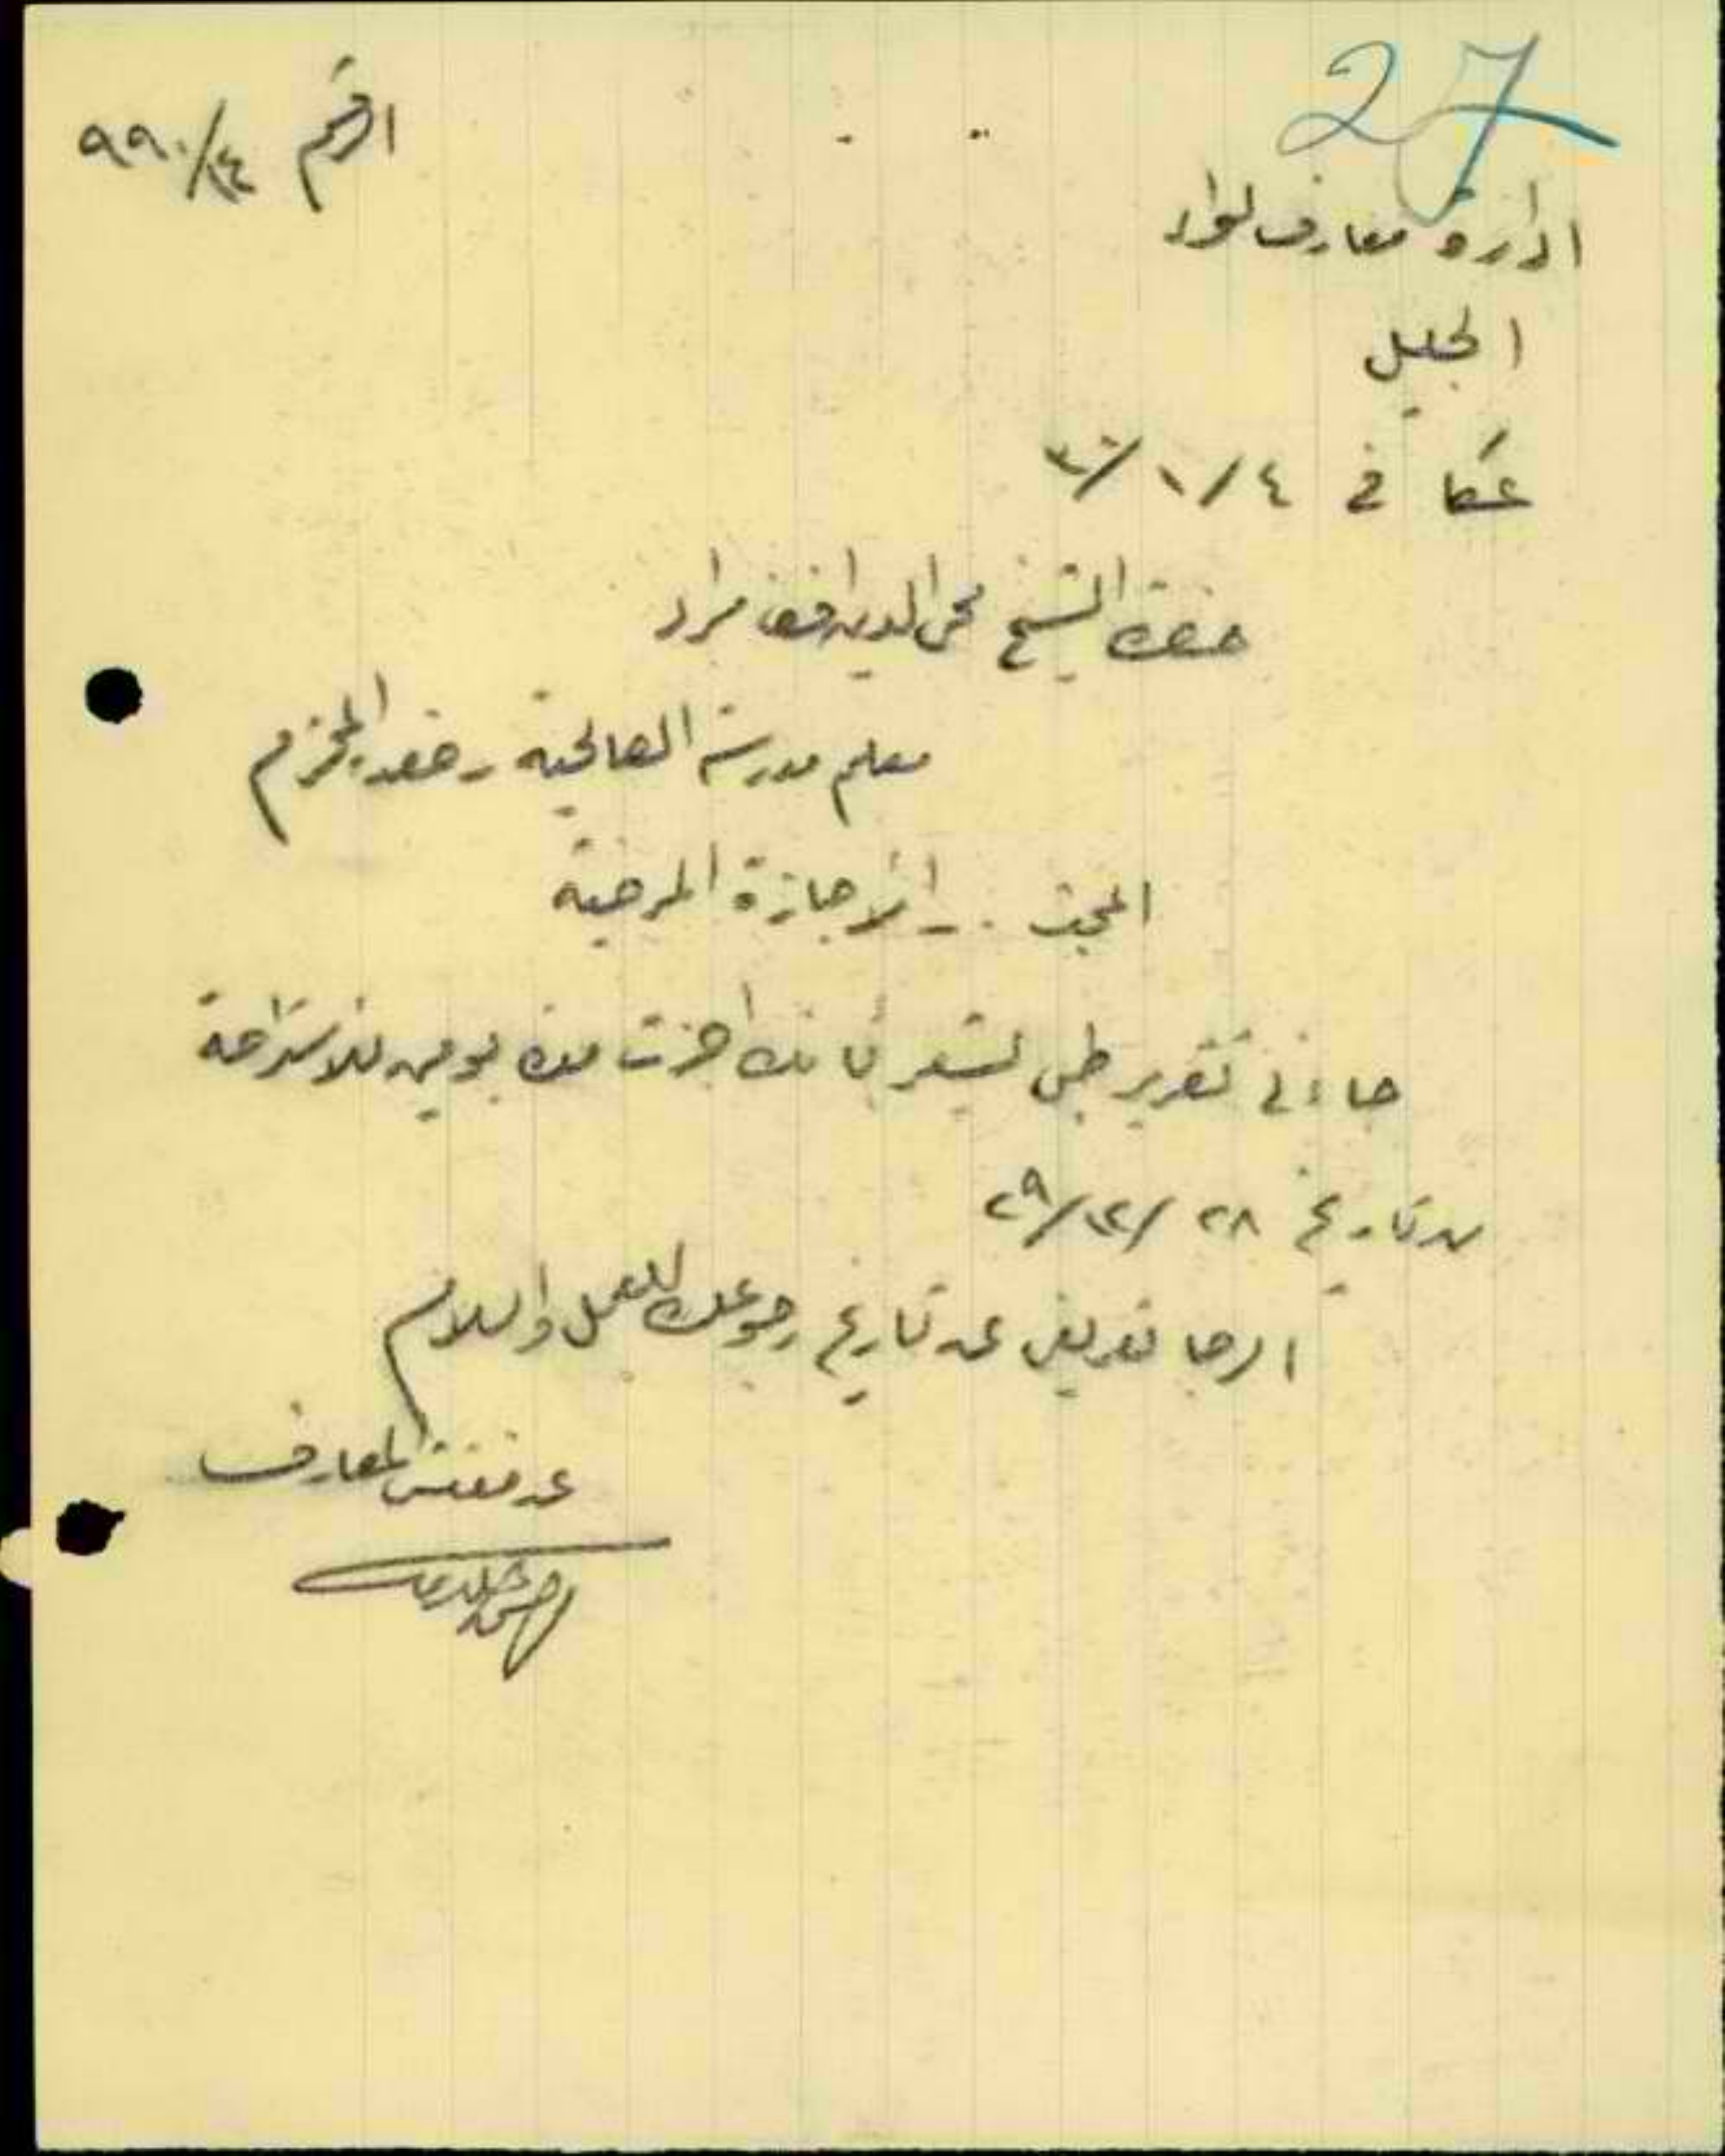 27
الرقم ٩٩٠/١٤
ادارة معارف لواء
الجليل
عكا في ٤/١/٣٠
حضرة الشيخ محي الدين افندي مراد
معلم مدرسة الصالحية - صفد المحترم
المبحث - الاجازة المرضية
جاءني تقرير طبي يشعر بانك اجزت مدة يومين للاستراحة
من تاريخ ٢٨/١٢/٢٩
الرجا تعريفي عن تاريخ رجوعك للعمل والسلام
عن مفتش المعارف